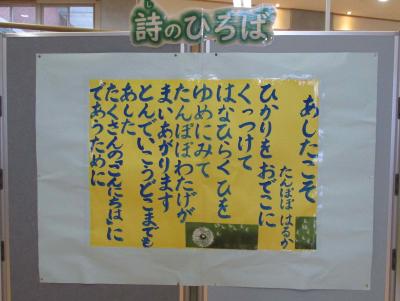 詩のひろば
し
あしたこそ
たんぽぽ はるか
ひかりを おでこに
くっつけて
はなひらく ひを
ゆめにみて
たんぽぽわたげが
まいあがります
とんでいこうどこまでも
あした
たくさんのこんにちはに
であうために